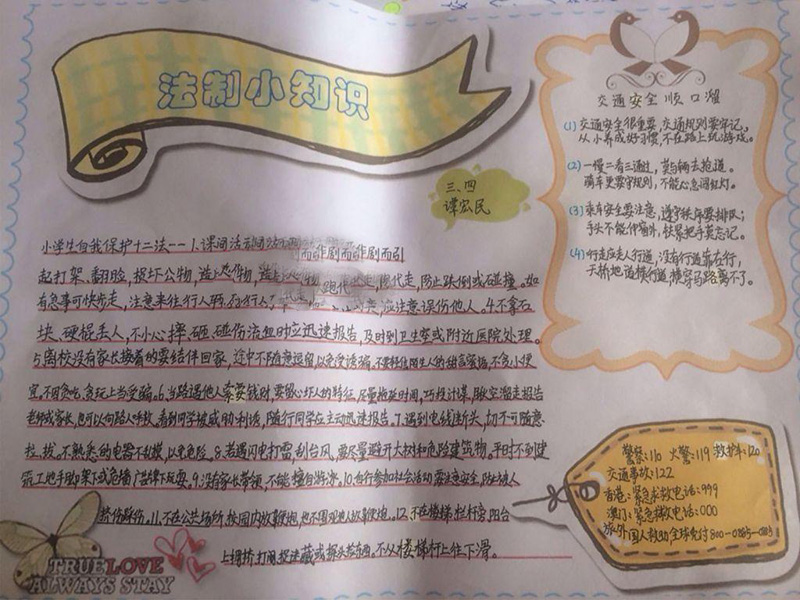 法制小知识
三、四
谭宏民
小学生自我保护十二法--1.课间活动
恶作剧而引
起打架、翻脸、损坏公物
跑代走,防止跌倒或碰撞。如
有急事可快步走,注意来往行人
应注意误伤他人。4.不拿石
块、硬棍丢人,不小心摔、砸、碰伤流血时应迅速报告,及时到卫生室或附近医院处理。
5.离校没有家长接着的要结伴回家,途中不随意逗留,以免受诱骗,不要轻信陌生人的甜言蜜语,不贪小便
宜,不因贪吃、贪玩上当受骗。6.当路遇他人索要钱财,要留心坏人的特征,尽量拖延时间,巧设计谋,脱空溜走报告
老师或家长,也可以向路人呼救,看到同学被威胁利诱,随行同学应主动迅速报告。7.遇到电线连头,切不可随意
拉、拔。不熟悉的电器不乱摸,以免危险。8.若遇闪电打雷,刮台风,要尽量避开大树和危险建筑物,平时不到建
筑工地手脚架下或危墙广告牌下玩耍。9.没有家长带领,不能擅自游泳。10.自行参加社会活动要注意安全,防止被人
挤伤踩伤。11.不在公共场所、校园内放鞭炮,也不围观他人放鞭炮。12.不在楼梯、栏杆旁、阳台
上拥挤、打闹、捉迷藏或探头拾东西。不从楼梯杆上往下滑。
TRUE LOVE
ALWAYS STAY
交通安全顺口溜
(1)交通安全很重要,交通规则要牢记,
从小养成好习惯,不在路上玩游戏。
(2)一慢二看三通过,莫与车辆去抢道。
骑车更要守规则,不能心急闯红灯。
(3)乘车安全要注意,遵守秩序要排队;
手头不能伸窗外,扶紧把手莫忘记。
(4)行走应走人行道,没有行道靠右行,
天桥地道横行道,横穿马路离不了。
警察:110 火警:119 救护车:120
交通事故:122
香港:紧急求救电话:999
澳门:紧急求救电话:000
旅外国人救助全球免付800-0885-0885